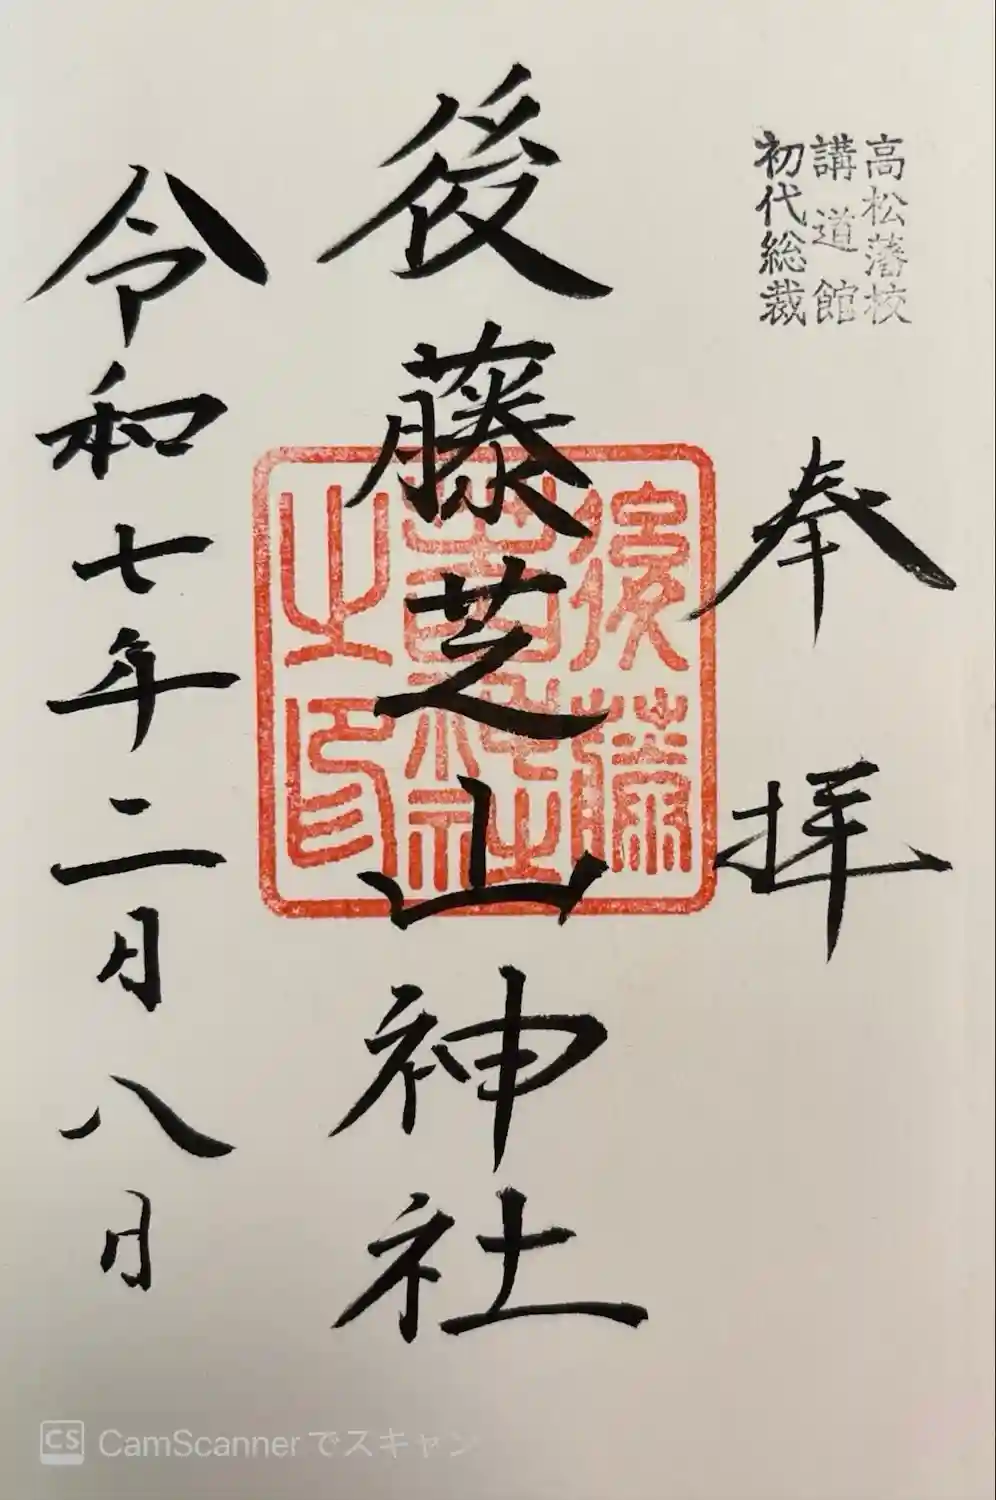 高松藩校
講道館
初代総裁
奉拝
後藤芝山神社
令和七年二月八日
後藤
之印
CS CamScannerでスキャン